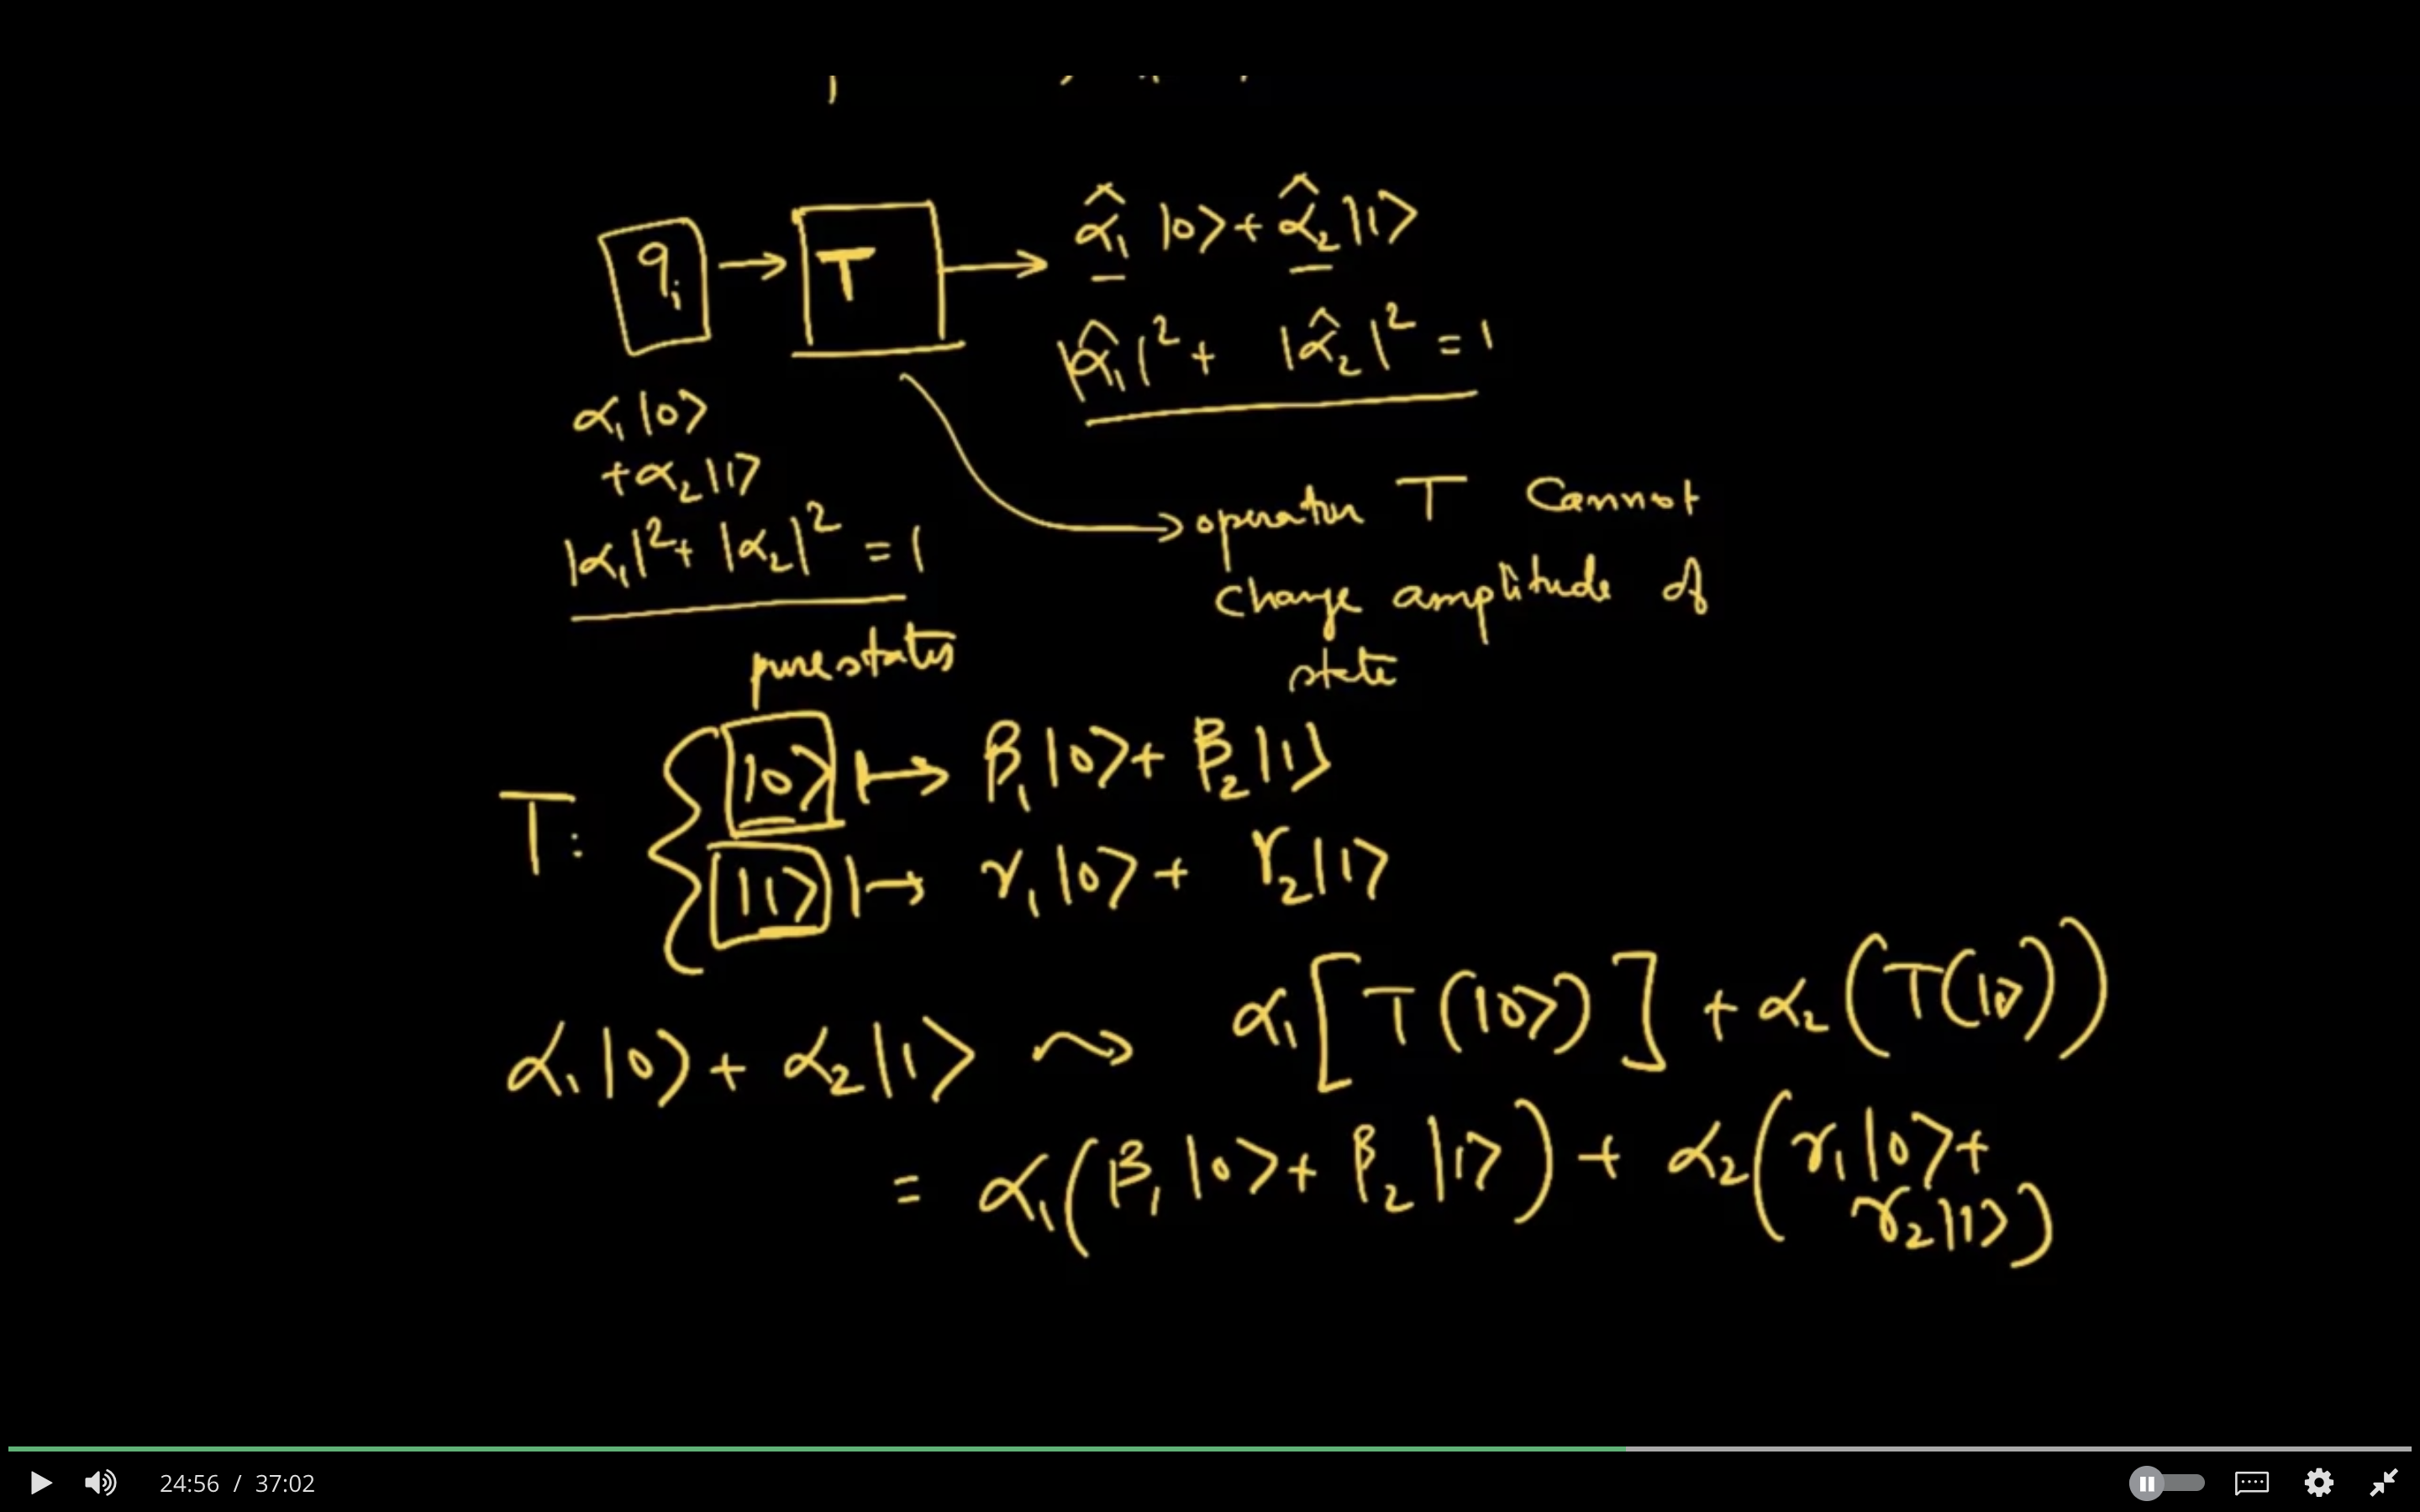 qᵢ → T → α̂₁ |0⟩ + α̂₂ |1⟩
|α̂₁|² + |α̂₂|² = 1
α₁ |0⟩
+ α₂ |1⟩
|α₁|² + |α₂|² = 1
operator T Cannot
Change amplitude of
state
pure states
T: { |0⟩ ↦ β₁ |0⟩ + β₂ |1⟩
|1⟩ ↦ γ₁ |0⟩ + γ₂ |1⟩
α₁ |0⟩ + α₂ |1⟩ ⇝ α₁ [T(|0⟩)] + α₂ (T(|1⟩))
= α₁ (β₁ |0⟩ + β₂ |1⟩) + α₂ (γ₁ |0⟩ +
γ₂ |1⟩)
24:56 / 37:02